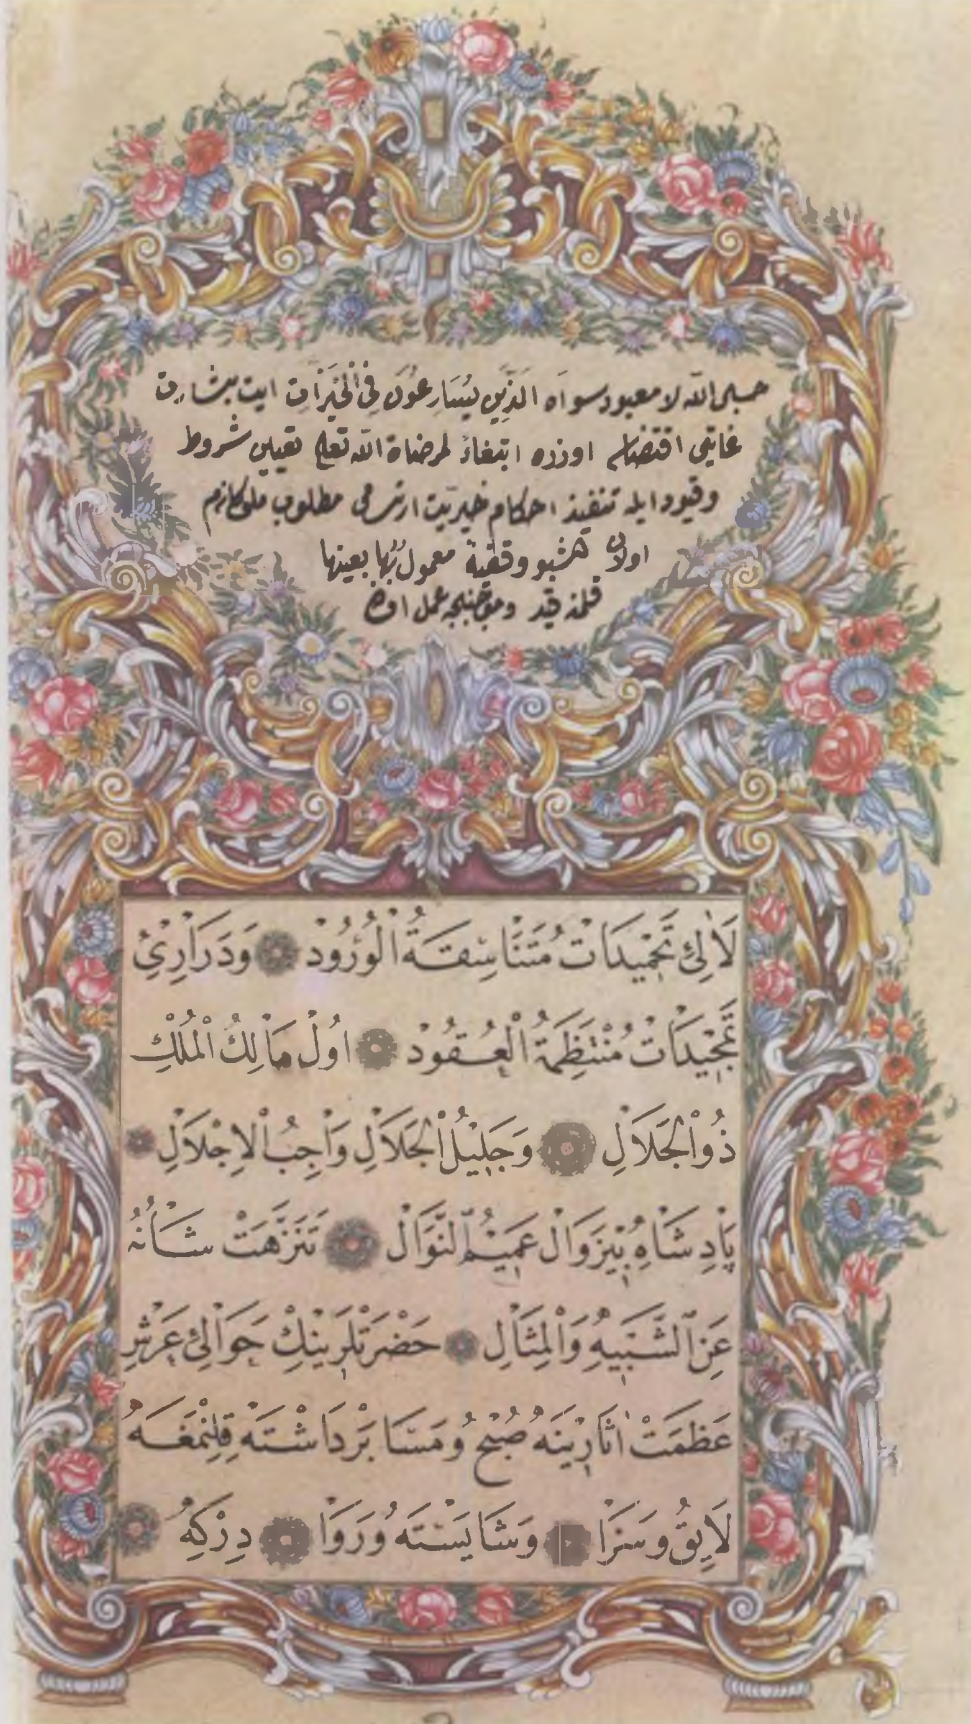 حسبی الله لا معبود سواه الَّذِينَ يُسَارِعُونَ فِي الْخَيْرَاتِ ایت بشارت
غایتی اقتضاسی اوزره ابتغاءً لمرضاة الله تعالی تعیین شروط
وقیود ایله تنفیذ احکام خیریت ارتسامی مطلوب ملوکانه‌م
اولان اشبو وقفیهٔ معمولٌ بها بعینها
قلمنه قید وموجبنجه عمل اولنه
لَاٰلِئِ تَحْمِيدَاتْ مُتَنَاسِقَةُ الْوُرُودْ وَدَرَارِئِ
تَمْجِيدَاتْ مُنْتَظِمَةُ الْعُقُودْ اُولْ مَالِكُ الْمُلْكِ
ذُو الْجَلَالِ وَجَلِيلُ الْجَلَالِ وَاجِبُ الْاِجْلَالِ
پَادِشَاهِ بِيزَوَالْ عَمِيمُ النَّوَالْ تَنَزَّهَتْ شَأْنُهُ
عَنِ الشَّبِيهِ وَالْمِثَالِ حَضْرَتْلَرِينِكْ حَوَالِئِ عَرْشِ
عَظَمَتْ اٰثَارِينَهْ صُبْحُ وَمَسَا بَرْدَاشْتَهْ قِلِنْمَغَهْ
لَايِقُ وَسَزَا وَشَايَسْتَهْ وَرَوَا دِرْكِهْ